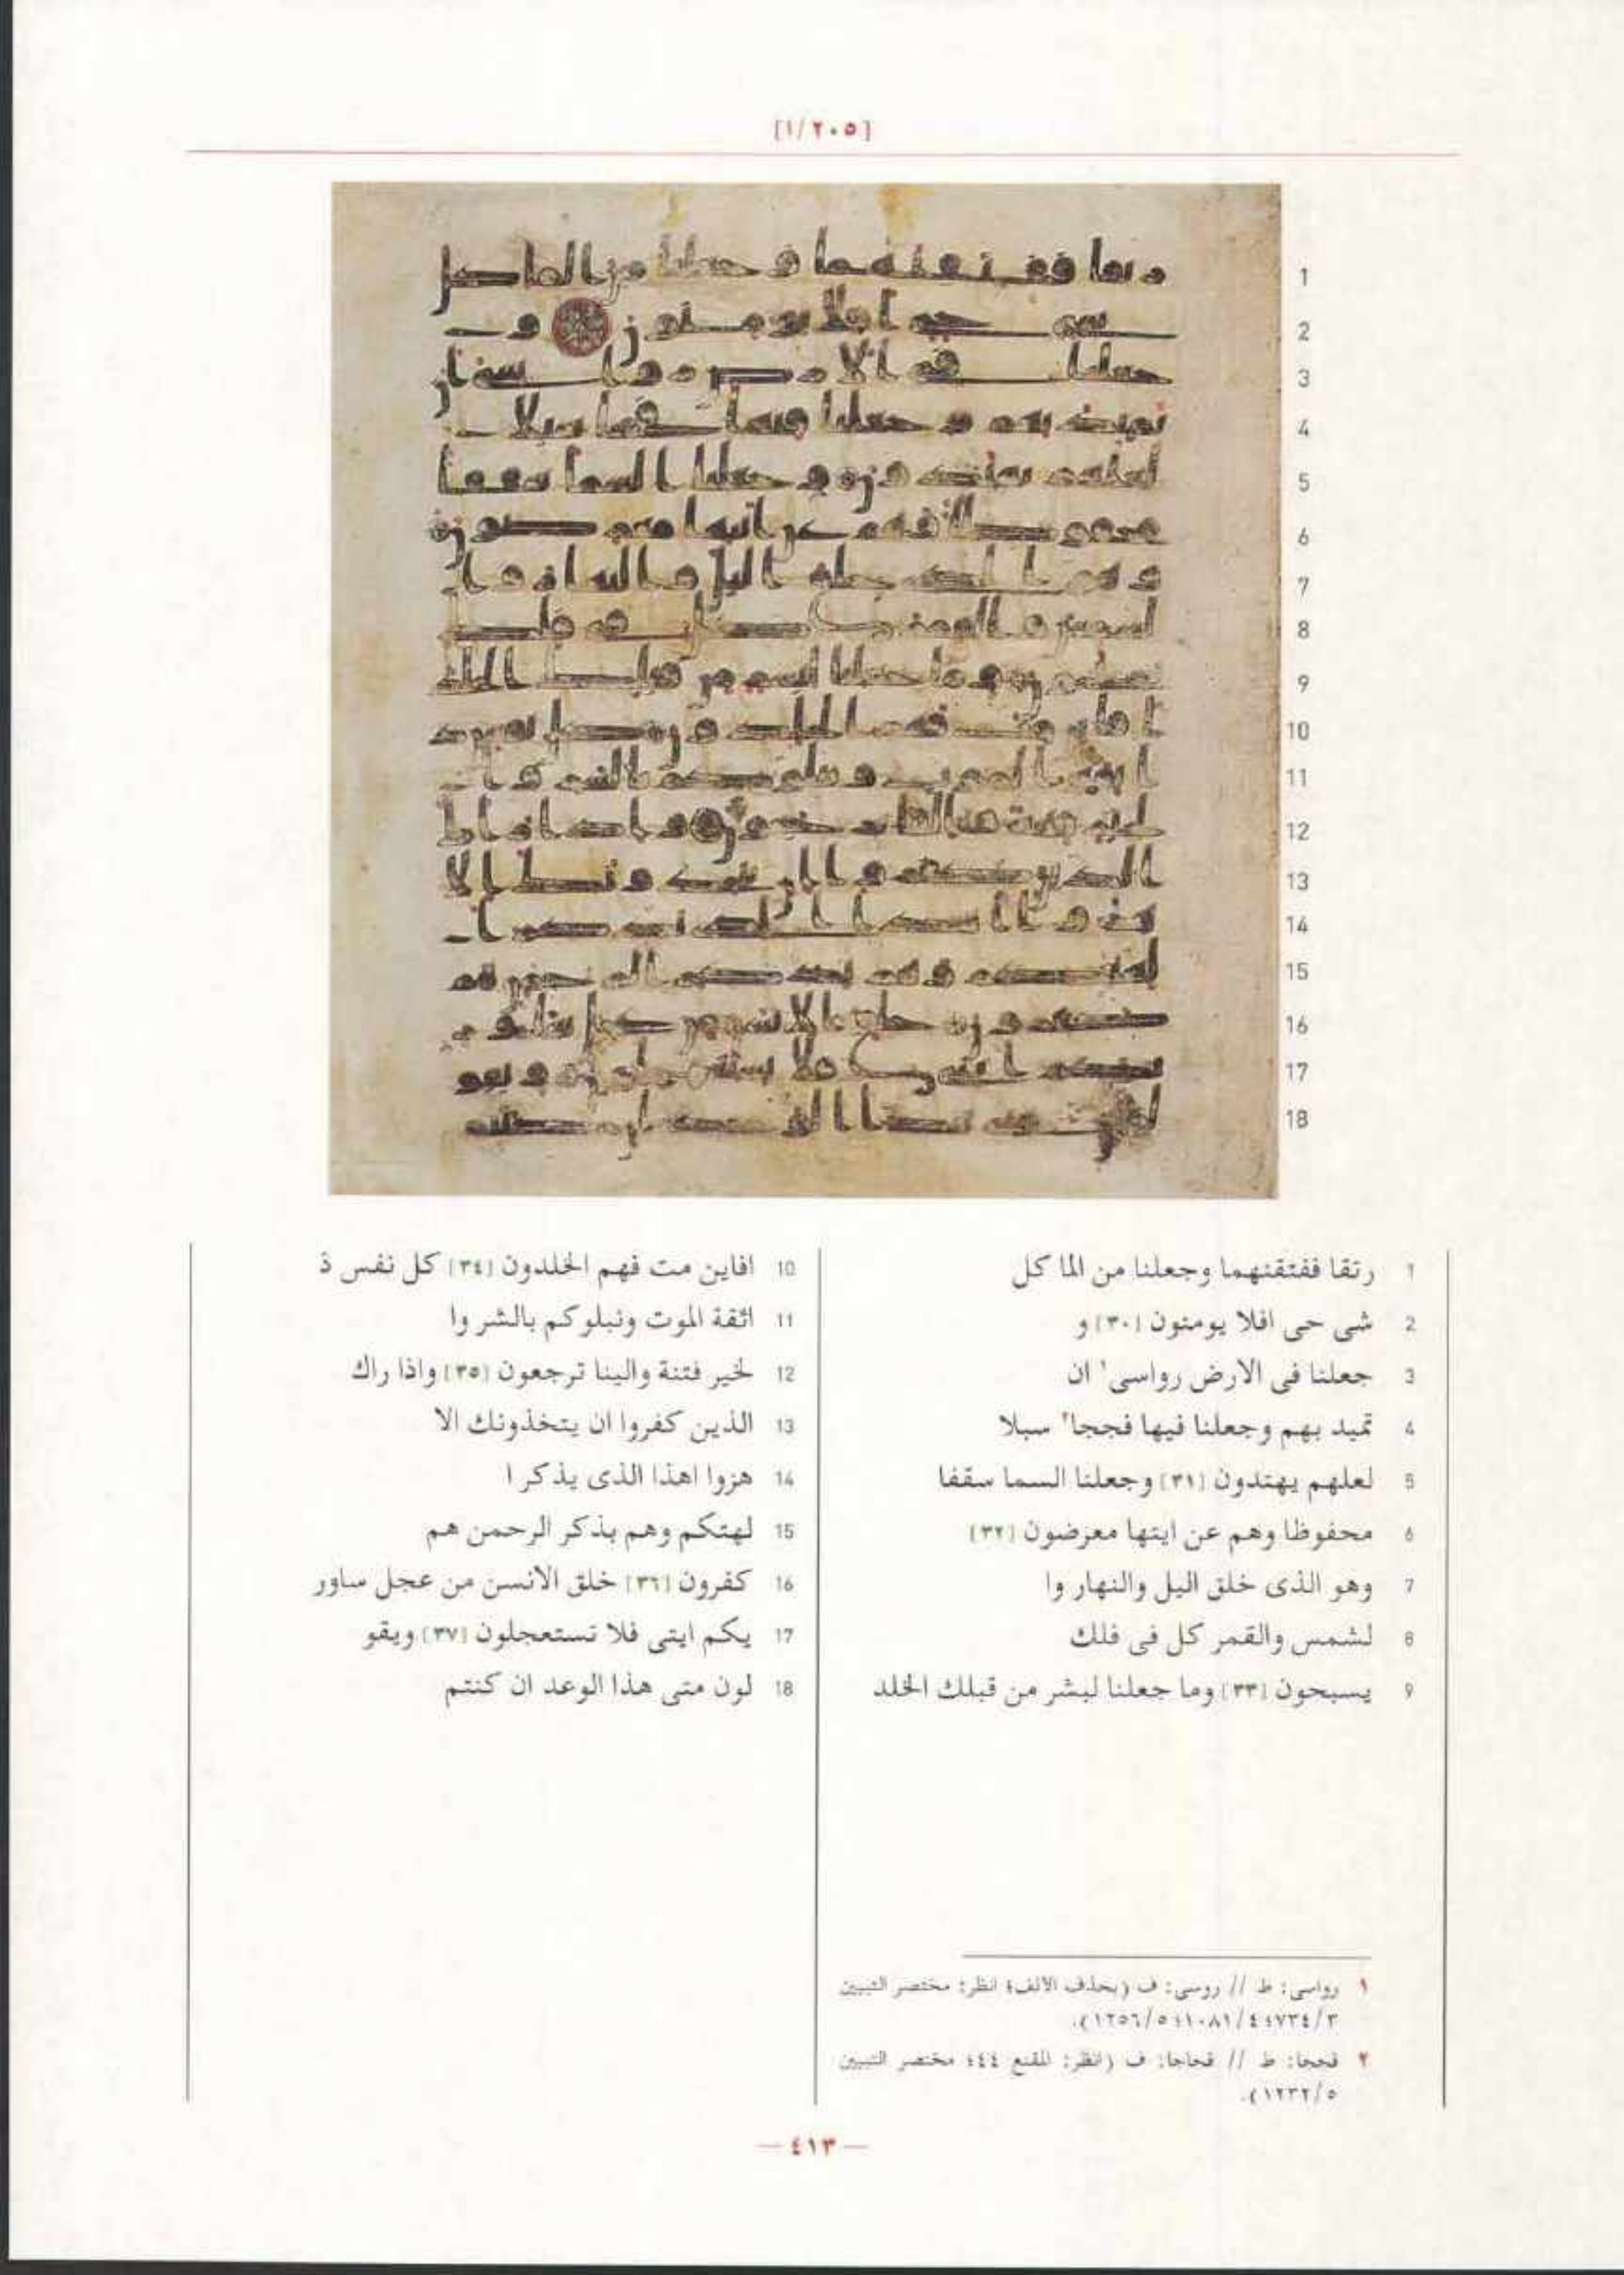 [٢٠٥/١]
1
2
3
4
5
6
7
8
9
10
11
12
13
14
15
16
17
18
1 رتقا ففتقنهما وجعلنا من الما كل
2 شى حى افلا يومنون [٣٠] و
3 جعلنا فى الارض رواسى١ ان
4 تميد بهم وجعلنا فيها فججا٢ سبلا
5 لعلهم يهتدون [٣١] وجعلنا السما سقفا
6 محفوظا وهم عن ايتها معرضون [٣٢]
7 وهو الذى خلق اليل والنهار وا
8 لشمس والقمر كل فى فلك
9 يسبحون [٣٣] وما جعلنا لبشر من قبلك الخلد
10 افاين مت فهم الخلدون [٣٤] كل نفس ذ
11 ائقة الموت ونبلوكم بالشر وا
12 لخير فتنة والينا ترجعون [٣٥] واذا راك
13 الذين كفروا ان يتخذونك الا
14 هزوا اهذا الذى يذكر ا
15 لهتكم وهم بذكر الرحمن هم
16 كفرون [٣٦] خلق الانسن من عجل ساور
17 يكم ايتى فلا تستعجلون [٣٧] ويقو
18 لون متى هذا الوعد ان كنتم
١ رواسى: ط // روسى: ف (بحذف الالف؛ انظر: مختصر التبيين
٣/٧٣٤؛ ٤/١٠٨١؛ ٥/١٢٥٦).
٢ فججا: ط // فجاجا: ف (انظر: المقنع ٤٤؛ مختصر التبيين
٥/١٢٣٢).
— ٤١٣ —